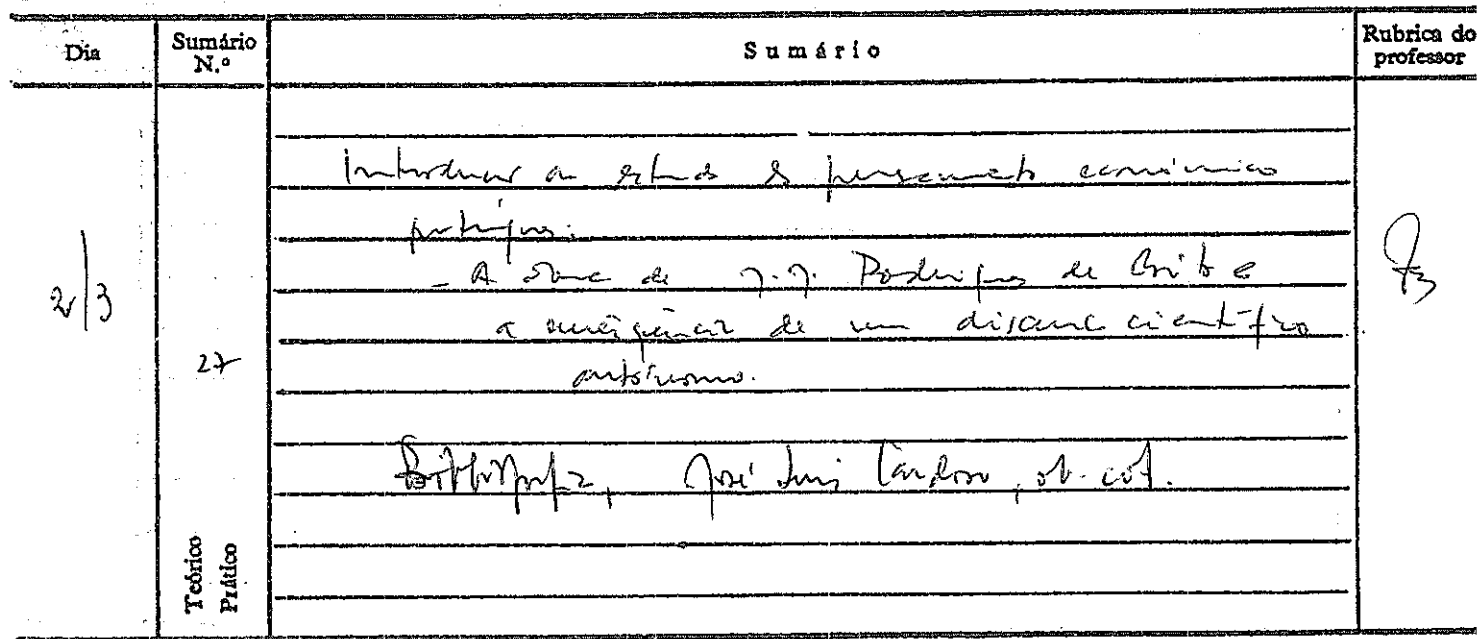 Dia
Sumário N.º
Sumário
Rubrica do professor
Introdução ao estudo do pensamento económico
português:
- A obra de J.J. Rodrigues de Brito e
a emergência de um discurso científico
autónomo.
27
Bibliografia, José Luís Cardoso, ob. cit.
Teórico
Prático